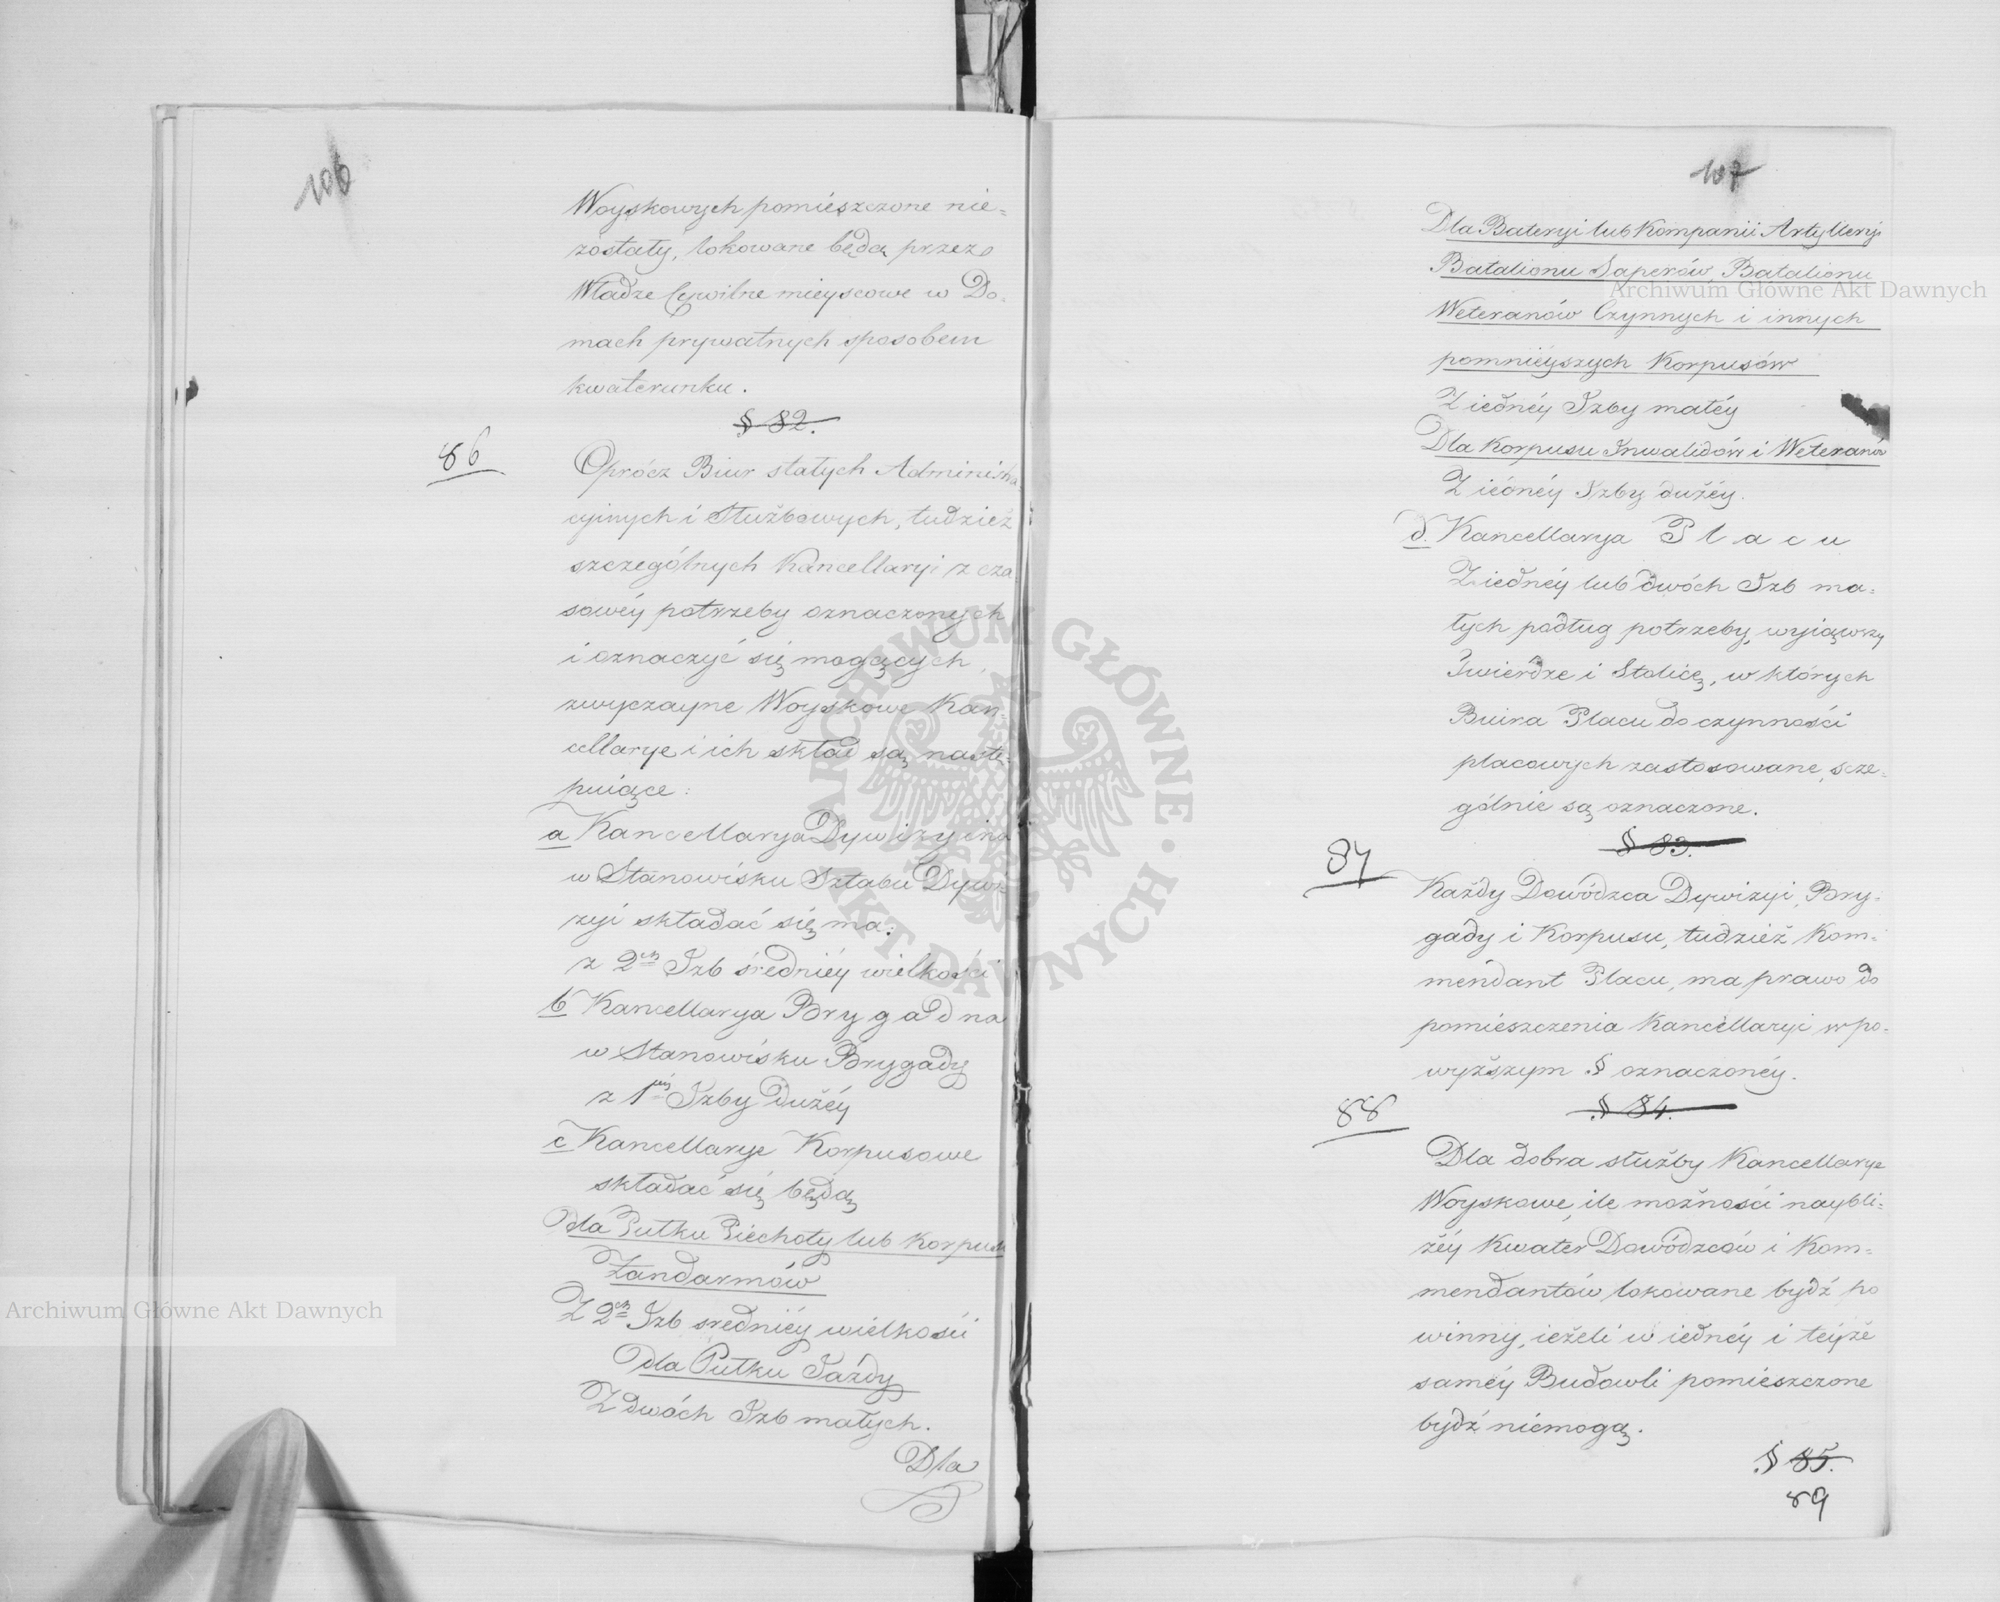 106
Woyskowych pomieszczone nie=
zostały, lokowane będą przez
Władze Cywilne mieyscowe w Do=
mach prywatnych sposobem
kwaterunku.
§ 82.
86
Oprócz Biur stałych Administra
cyinych i Służbowych, tudzież
szczególnych Kancellaryi z cza
sowéy potrzeby oznaczonych
i oznaczyć się mogących,
zwyczayne Woyskowe Kan=
cellarye i ich skład są nastę=
puiące:
a Kancellarya Dywizyina
w Stanowisku Sztabu Dywi=
zyi składać się ma:
z 2ch Izb średniéy wielkości
b Kancellarya Brygadna
w Stanowisku Brygady
z 1éy Izby dużéy
c Kancellarye Korpusowe
składać się będą
dla Pułku Piechoty lub Korpusu
Żandarmów
Z 2ch Izb średniéy wielkości
dla Pułku Jazdy
Z dwóch Izb małych.
Dla
107
Dla Bateryi lub Kompanii Artylleryi
Batalionu Saperów Batalionu
Weteranów Czynnych i innych
pomnieyszych Korpusów
Z iednéy Izby małéy
Dla Korpusu Inwalidów i Weteranów
Z iednéy Izby dużéy.
d. Kancellarya Placu
Z iednéy lub dwóch Izb ma=
łych podług potrzeby, wyiąwszy
Twierdze i Stolicę, w których
Buira Placu do czynności
placowych zastosowane, scze=
gólnie są oznaczone.
§ 83.
87
Każdy Dowódzca Dywizyi, Bry=
gady i Korpusu, tudzież Kom=
mendant Placu, ma prawo do
pomieszczenia Kancellaryi w po=
wyższym § oznaczonéy.
§ 84.
88
Dla dobra służby Kancellarye
Woyskowe, ile możności naybli=
żéy Kwater Dowódzców i Kom=
mendantów lokowane bydź po
winny, ieżeli w iednéy i teyże
saméy Budowli pomieszczone
bydź niemogą.
§ 85.
89
Archiwum Główne Akt Dawnych
Archiwum Główne Akt Dawnych
ARCHIWUM GŁÓWNE · AKT DAWNYCH ·